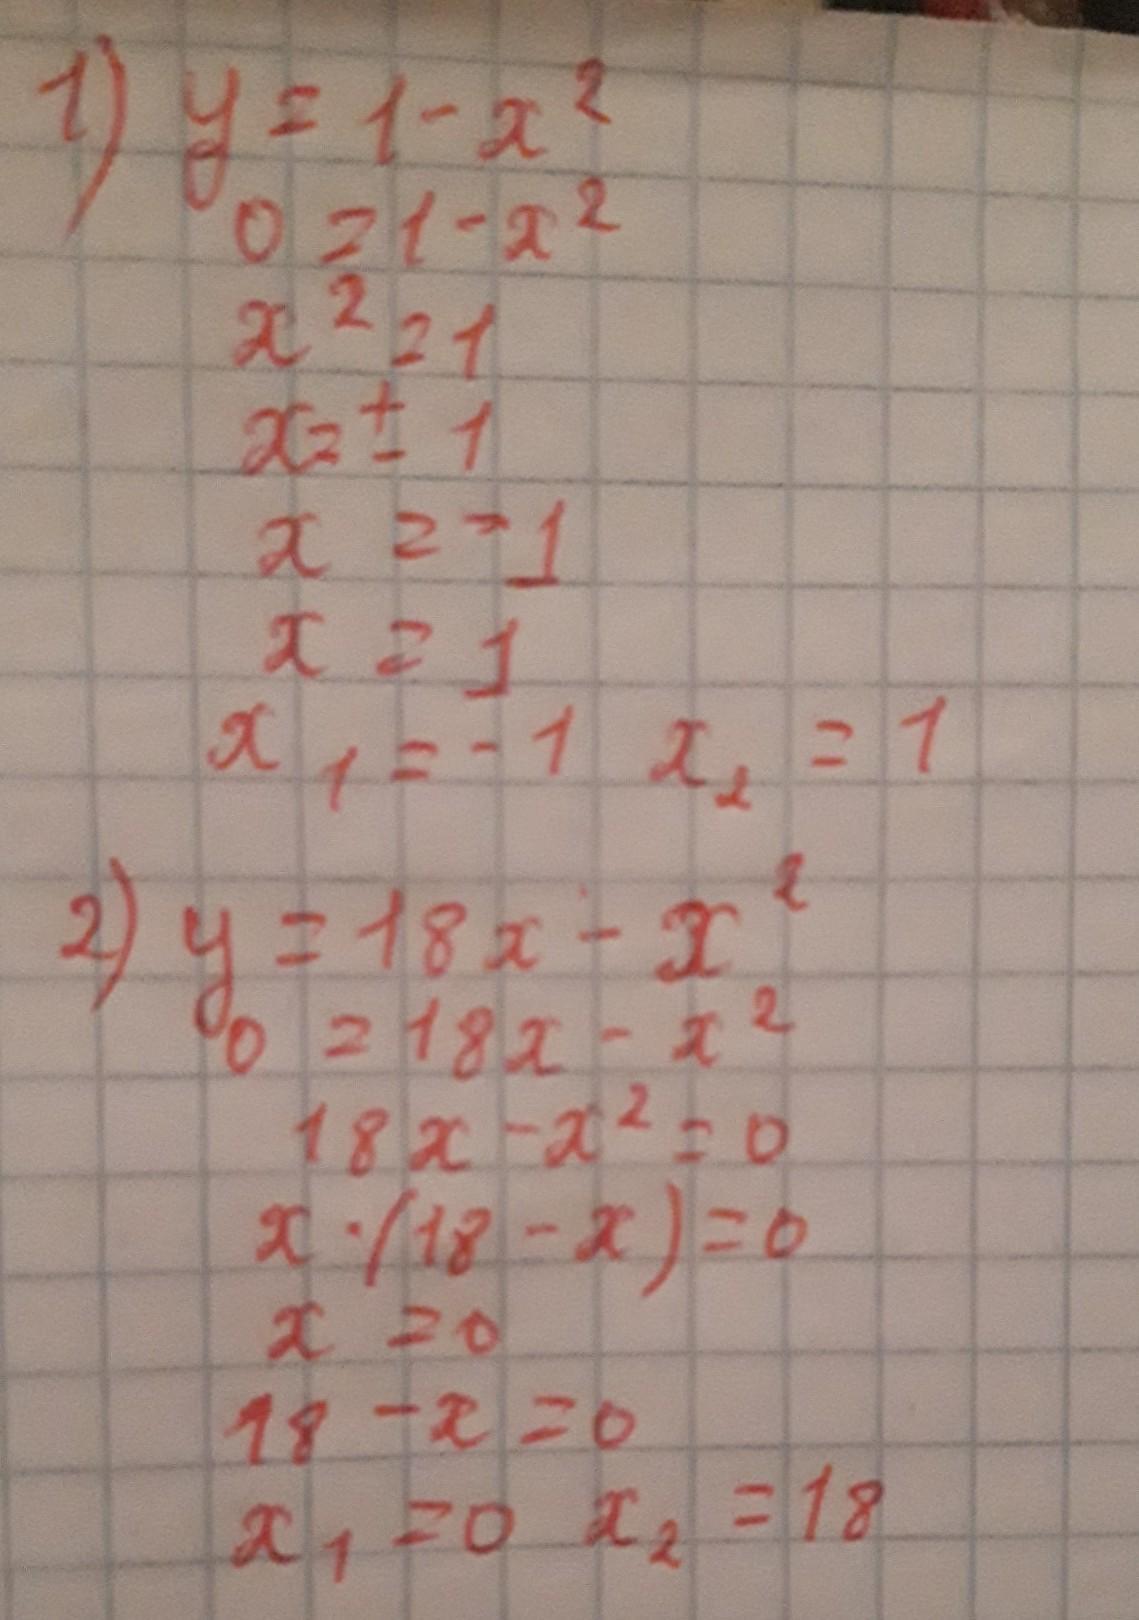 1) y = 1 - x²
0 = 1 - x²
x² = 1
x = ± 1
x = -1
x = 1
x₁ = -1 x₂ = 1
2) y = 18x - x²
0 = 18x - x²
18x - x² = 0
x · (18 - x) = 0
x = 0
18 - x = 0
x₁ = 0 x₂ = 18